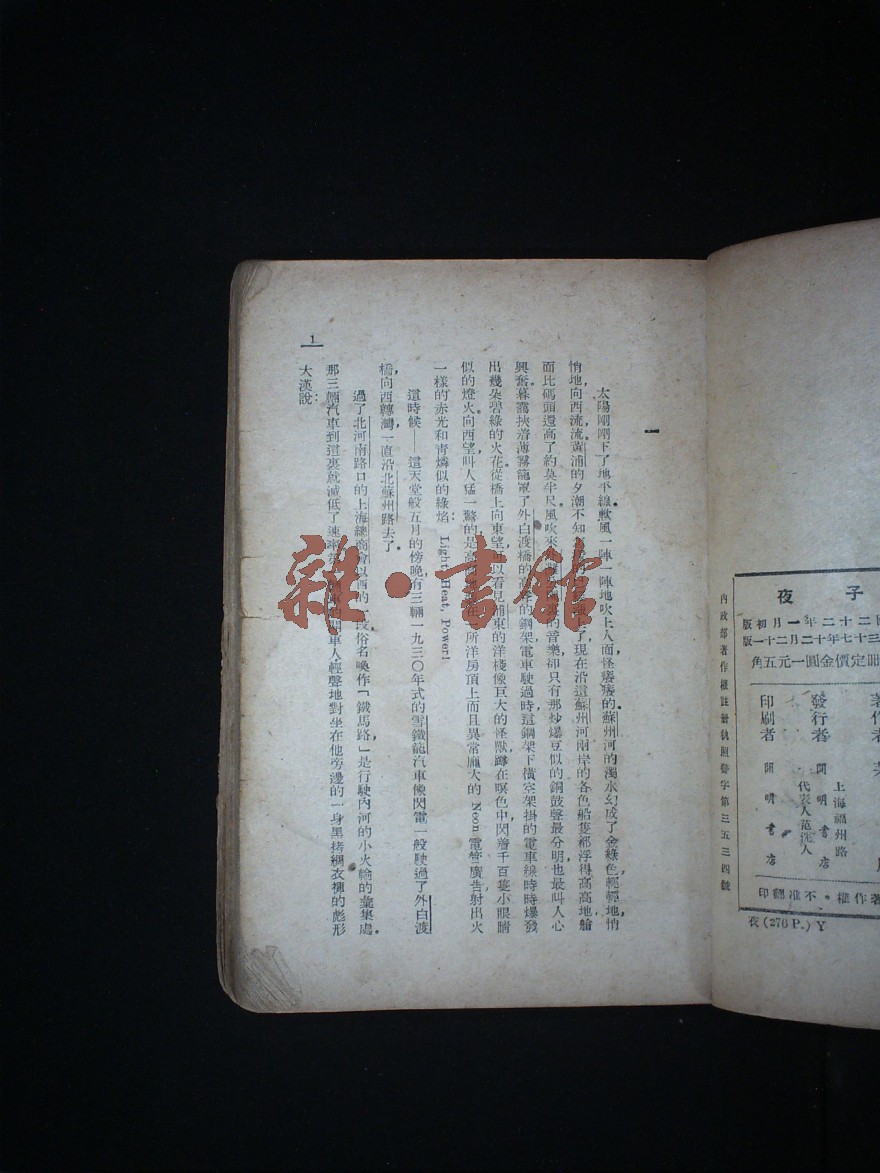 子夜
二十二年一月初版
三十七年十二月二十一版
定價金圓一元五角
發行者 開明書店
上海福州路
代表人范洗人
印刷者 開明書店
著作權・不准翻印
夜(276 P.) Y
內政部著作權註冊執照警字第三五三四號
一
太陽剛剛下了地平線。軟風一陣一陣地吹上人面,怪癢癢的。蘇州河的濁水幻成了金綠色,輕輕地,悄
悄地,向西流流。黃浦的夕潮不知 上了,現在沿這蘇州河兩岸的各色船隻都浮得高高地,艙
面比碼頭還高了約莫半尺。風吹來 的音樂,却只有那炒爆豆似的銅鼓聲最分明,也最叫人心
興奮。暮靄挾着薄霧籠罩了外白渡橋的高聳的鋼架,電車駛過時,這鋼架下橫空架掛的電車線時時爆發
出幾朵碧綠的火花。從橋上向東望,可以看見浦東的洋棧像巨大的怪獸,蹲在暝色中,閃着千百隻小眼睛
似的燈火。向西望,叫人猛一驚的,是高 在一所洋房頂上而且異常龐大的 Neon 電管廣告,射出火
一樣的赤光和青燐似的綠焰:Light, Heat, Power!
這時候——這天堂般五月的傍晚,有三輛一九三〇年式的雪鐵龍汽車像閃電一般駛過了外白渡
橋,向西轉灣,一直沿北蘇州路去了。
過了北河南路口的上海總商會以西的一段,俗名喚作「鐵馬路」,是行駛內河的小火輪的彙集處。
那三輛汽車到這裏就減低了速率。 的開車人輕聲地對坐在他旁邊的一身黑拷綢衣褲的彪形
大漢說:
1
雜・書館